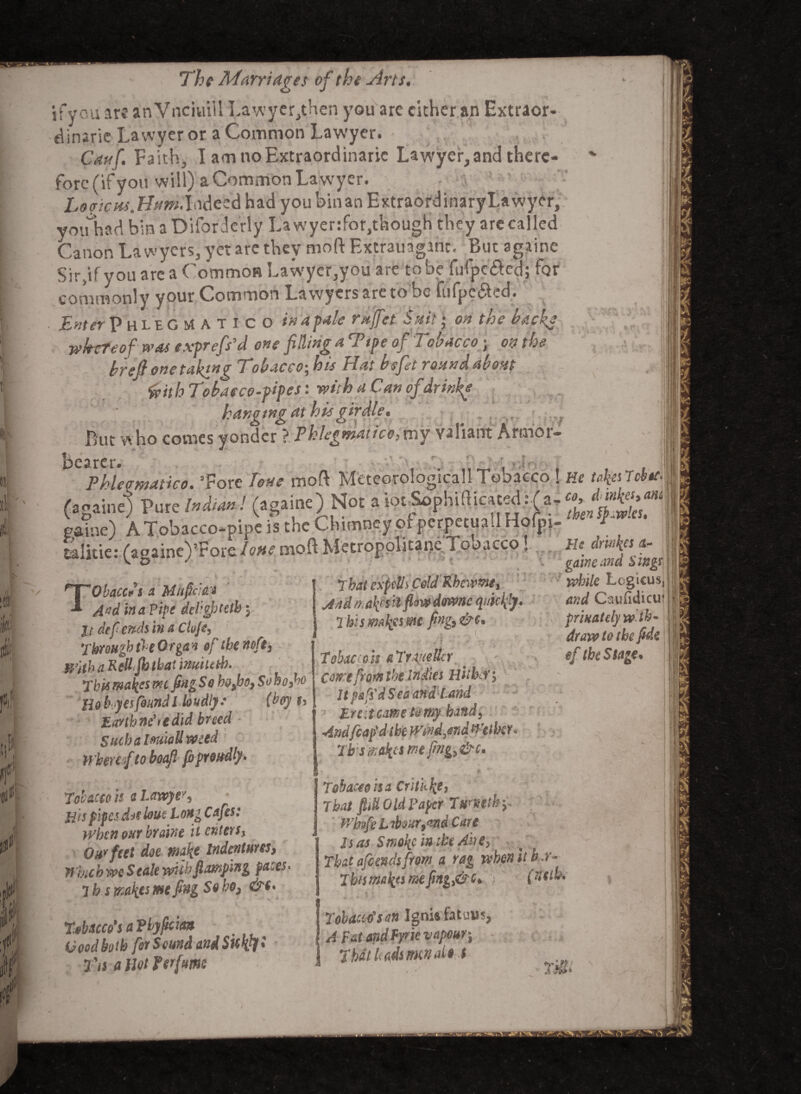 The Marriages of the Arts.
if you are an Vnciuill Lawyer, then you are either an Extraor-
dinarie Lawyer or a Common Lawyer.
Cauf. Faith, I am no Extraordinarie Lawyer, and there-
fore (if you will) a Common Lawyer.
Logicus. Hum. Indeed had you bin an Extraordinary Lawyer,
you had bin a Disorderly Lawyer: for, though they are called
Canon Lawyers, yet are they most Extrauagant. But againe
Sir, if you are a Common Lawyer, you are to be suspected; for
commonly your Common Lawyers are to be suspected.
Enter PHLEGMATICO in a pale russet Suit; on the backe
whereof was express'd one filling a Pipe of Tobacco; on the
brest one taking Tobacco; his Hat beset round about
with Tobacco-pipes: with a Can of drinke
hanging at his girdle.
But who comes yonder? Phlegmatico, my valiant Armor-
bearer.
Phlegmatico. 'Fore Ioue most Meteorologicall Tobacco!
(againe) Pure Indian! (againe) Not a iot Sophisticated: (a-
gaine) A Tobacco-pipe is the Chimney of perpetuall Hospi-
talitie: (againe) 'Fore Ioue most Metropolitane Tobacco!
He takes Tobac-
co, drinkes, and
then spawles.
He drinkes a-
gaine and Sings
while Logicus,
and Causidicus
priuately with-
draw to the side
of the Stage.
TObacco's a Musician
And in a Pipe delighteth;
It descends in a Close,
Through the Organ of the nose,
With a Relish that inuiteth.
This makes me sing So ho, ho, So ho, ho
Ho boyes sound I loudly: (boyes,
Earth ne're did breed
Such a Iouiall weed
Whereof to boast so proudly.
Tobacco is a Lawyer,
His pipes doe loue Long Cases:
When our braine it enters,
Our feet doe make Indentures,
Which we Seale with stamping paces.
This makes me sing So ho, &c.
Tobacco's a Physician
Good both for Sound and Sickly;
T'is a Hot Perfume
That expells Cold Rhewme,
And makes it flow downe quickly.
This makes me sing, &c.
Tobacco is a Traueller
Come from the Indies Hither;
It pass'd Sea and Land
Ere it came to my hand,
And scap'd the Wind, and Wether.
This makes me sing, &c.
Tobacco is a Critike,
That still Old Paper Turneth;
Whose Labour, and Care
Is as Smoke in the Aire,
That ascends from a rag when it bur-
This makes me sing, &c. (neth.
Tobacco's an Ignis fatuus,
A Fat and Fyrie vapour;
That leads men about
Till